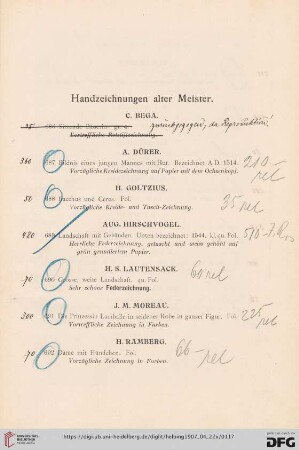 Handzeichnungen alter Meister.
C. BEGA.
25 686 Sitzende Bäuerin. gr. 4. zurückgezogen, da Reproduktion!
Vortreffliche Rötelzeichnung.
A. DÜRER.
310 687 Bildnis eines jungen Mannes mit Hut. Bezeichnet A D 1514. 210 rel
Vorzügliche Kreidezeichnung auf Papier mit dem Ochsenkopf.
H. GOLTZIUS.
50 688 Bacchus und Ceres. Fol. 35 rel
Vorzügliche Kreide- und Tusch-Zeichnung.
AUG. HIRSCHVOGEL.
420 689 Landschaft mit Gebäuden. Unten bezeichnet: 1544. kl. qu. Fol. 570
Herrliche Federzeichnung, getuscht und weiss gehöht auf
grün grundiertem Papier.
H. S. LAUTENSACK. 60 rel
70 690 Grosse, weite Landschaft. qu. Fol.
Sehr schöne Federzeichnung.
J. M. MOREAU.
300 691 Die Prinzessin Lamballe in seidener Robe in ganzer Figur. Fol. 225 rel
Vortreffliche Zeichnung in Farben.
H. RAMBERG.
70 692 Dame mit Hündchen. Fol. 66 rel
Vorzügliche Zeichnung in Farben.
UNIVERSITÄTS-
BIBLIOTHEK
HEIDELBERG
http://digi.ub.uni-heidelberg.de/diglit/helbing1907_04_22a/0117
Gefördert durch die
DFG